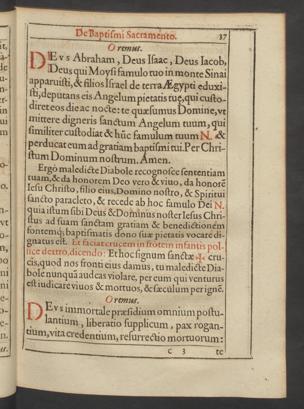 De Baptismi Sacramento. 37
Oremus.
DEvs Abraham, Deus Isaac, Deus Iacob,
Deus qui Moysi famulo tuo in monte Sinai
apparuisti, & filios Israel de terra Ægypti eduxi-
sti, deputans eis Angelum pietatis tuę, qui custo-
diret eos die ac nocte: te quæsumus Domine, vt
mittere digneris sanctum Angelum tuum, qui
similiter custodiat & hũc famulum tuum N. &
perducat eum ad gratiam baptismi tui. Per Chri-
stum Dominum nostrum. Amen.
Ergo maledicte Diabole recognosce sententiam
tuam, & da honorem Deo vero & viuo, da honorẽ
Iesu Christo, filio eius, Domino nostro, & Spiritui
sancto paracleto, & recede ab hoc famulo Dei N.
quia istum sibi Deus & Dominus noster Iesus Chri-
stus ad suam sanctam gratiam & benedictionẽm
fontemq; baptismatis dono suæ pietatis vocare di-
gnatus est. Et faciat crucem in fronte infantis pol-
lice dextro, dicendo: Et hoc signum sanctæ ✠ cru-
cis, quod nos fronti eius damus, tu maledicte Dia-
bole nunquã audeas violare, per eum qui venturus
est iudicare viuos & mortuos, & sæculum per ignẽ.
Oremus.
DEvs immortale præsidium omnium postu-
lantium, liberatio supplicum, pax rogan-
tium, vita credentium, resurrectio mortuorum:
C 3 te